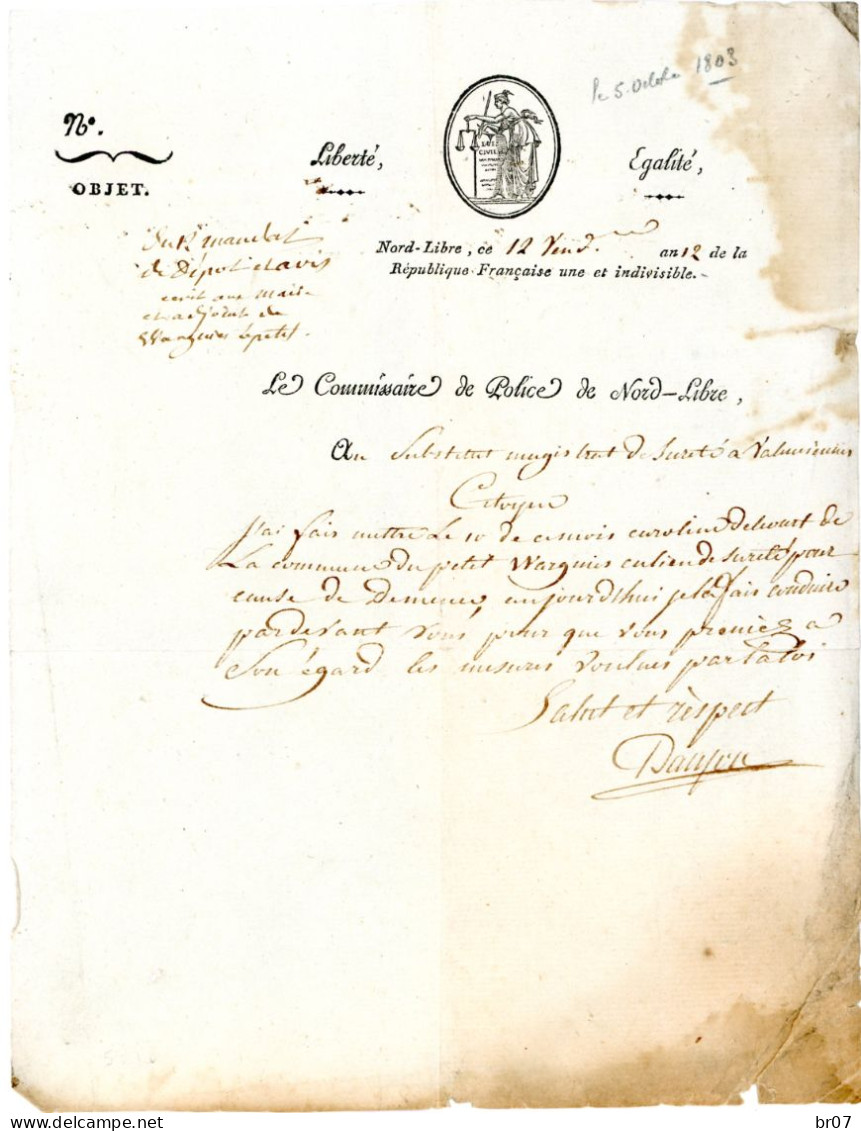 le 5. Octobre 1803
Nº.
OBJET.
Liberté,
Egalité,
LOIX
CIVIL
mandat
de Dépot et avis
ecrit aux Maire
et adjoint de
Warguies lepetit.
Nord-Libre, ce 12 Vend.re an 12 de la
République Française une et indivisible.
Le Commissaire de Police de Nord-Libre,
Au Substitut magistrat de sureté a Valenciennes
Citoyen
J'ai fais mettre Le 10 de cemois caroline de
La commune du petit Warguies enlieu de sureté pour
cause de Demence, aujourd'hui je la fais conduire
pardevant vous pour que vous preniez a
Son égard les mesures voulues parlaloi
Salut et respect
br07